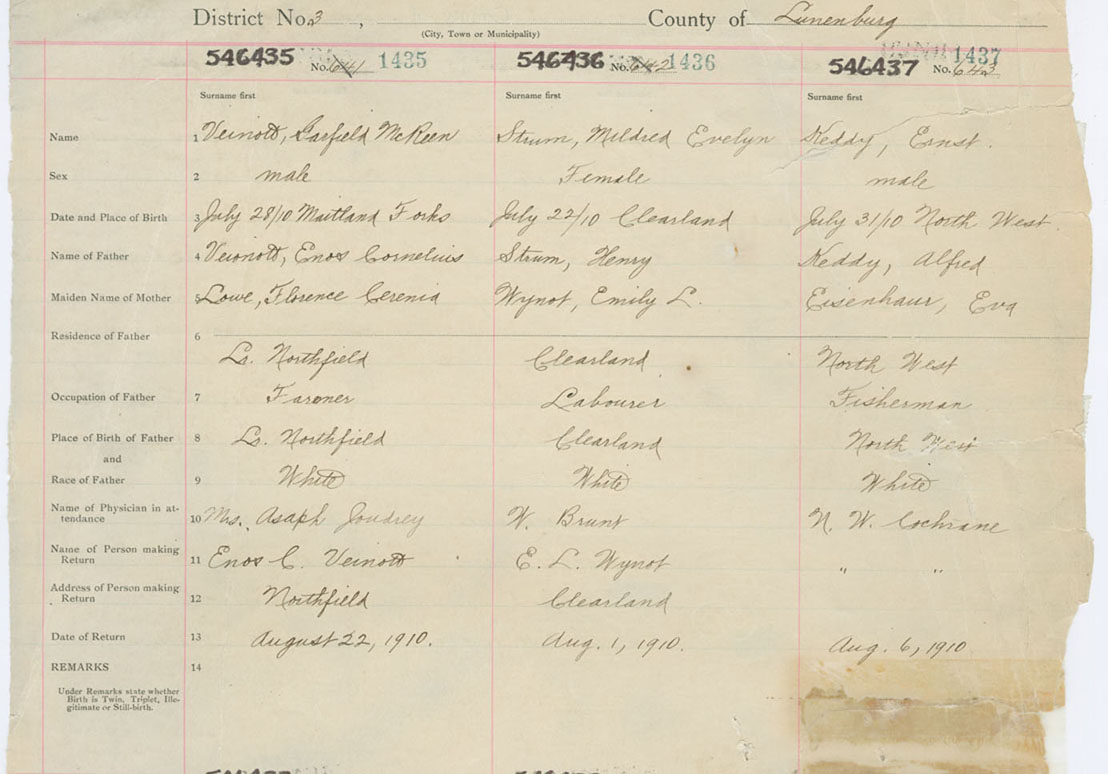 District No. 3, County of Lunenburg
(City, Town or Municipality)
546435 No. 641 1435 546436 No. 642 1436 546437 No. 643 1437
Surname first Surname first Surname first
Name 1 Veinott, Garfield McKeen Strum, Mildred Evelyn Keddy, Ernst.
Sex 2 male Female male
Date and Place of Birth 3 July 28/10 Maitland Forks July 22/10 Clearland July 31/10 North West.
Name of Father 4 Veinott, Enos Cornelius Strum, Henry Keddy, Alfred
Maiden Name of Mother 5 Lowe, Florence Cerenia Wynot, Emily L. Eisenhaur, Eva
Residence of Father 6
Lr. Northfield Clearland North West
Occupation of Father 7 Farmer Labourer Fisherman
Place of Birth of Father 8 Lr. Northfield Clearland North West
and
Race of Father 9 White White White
Name of Physician in at-
tendance 10 Mrs. Asaph Joudrey W. Brunt N. W. Cochrane
Name of Person making
Return 11 Enos C. Veinott E. L. Wynot " "
Address of Person making
Return 12 Northfield Clearland
Date of Return 13 August 22, 1910. Aug. 1, 1910. Aug. 6, 1910
REMARKS 14
Under Remarks state whether
Birth is Twin, Triplet, Ille-
gitimate or Still-birth.